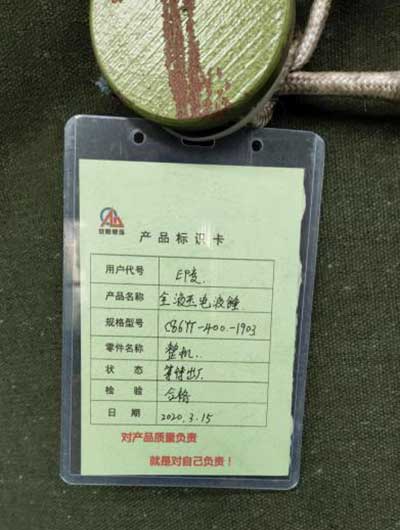 产品标识卡
用户代号 印度
产品名称 全液压电液锤
规格型号 C86YT-400-1903
零件名称 整机
状态 等待出厂
检验 合格
日期 2020.3.15
对产品质量负责
就是对自己负责！